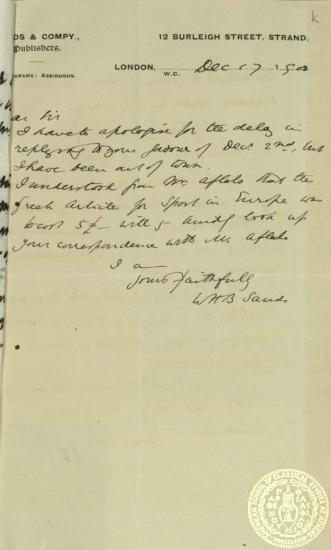 DS & COMPY.,
Publishers.
12 BURLEIGH STREET, STRAND,
GRAMS: ASSIDUOUS.
LONDON, Dec 17 1900
W.C.
ar Sir
I have to apologise for the delay in
replying to your favour of Dec 2nd, but
I have been out of town.
I understood from Mr Aflalo that the
Greek Article for Sport in Europe was
to cost 5£ - will you kindly look up
your correspondence with Mr Aflalo
I am
Yours faithfully
WHB Sands